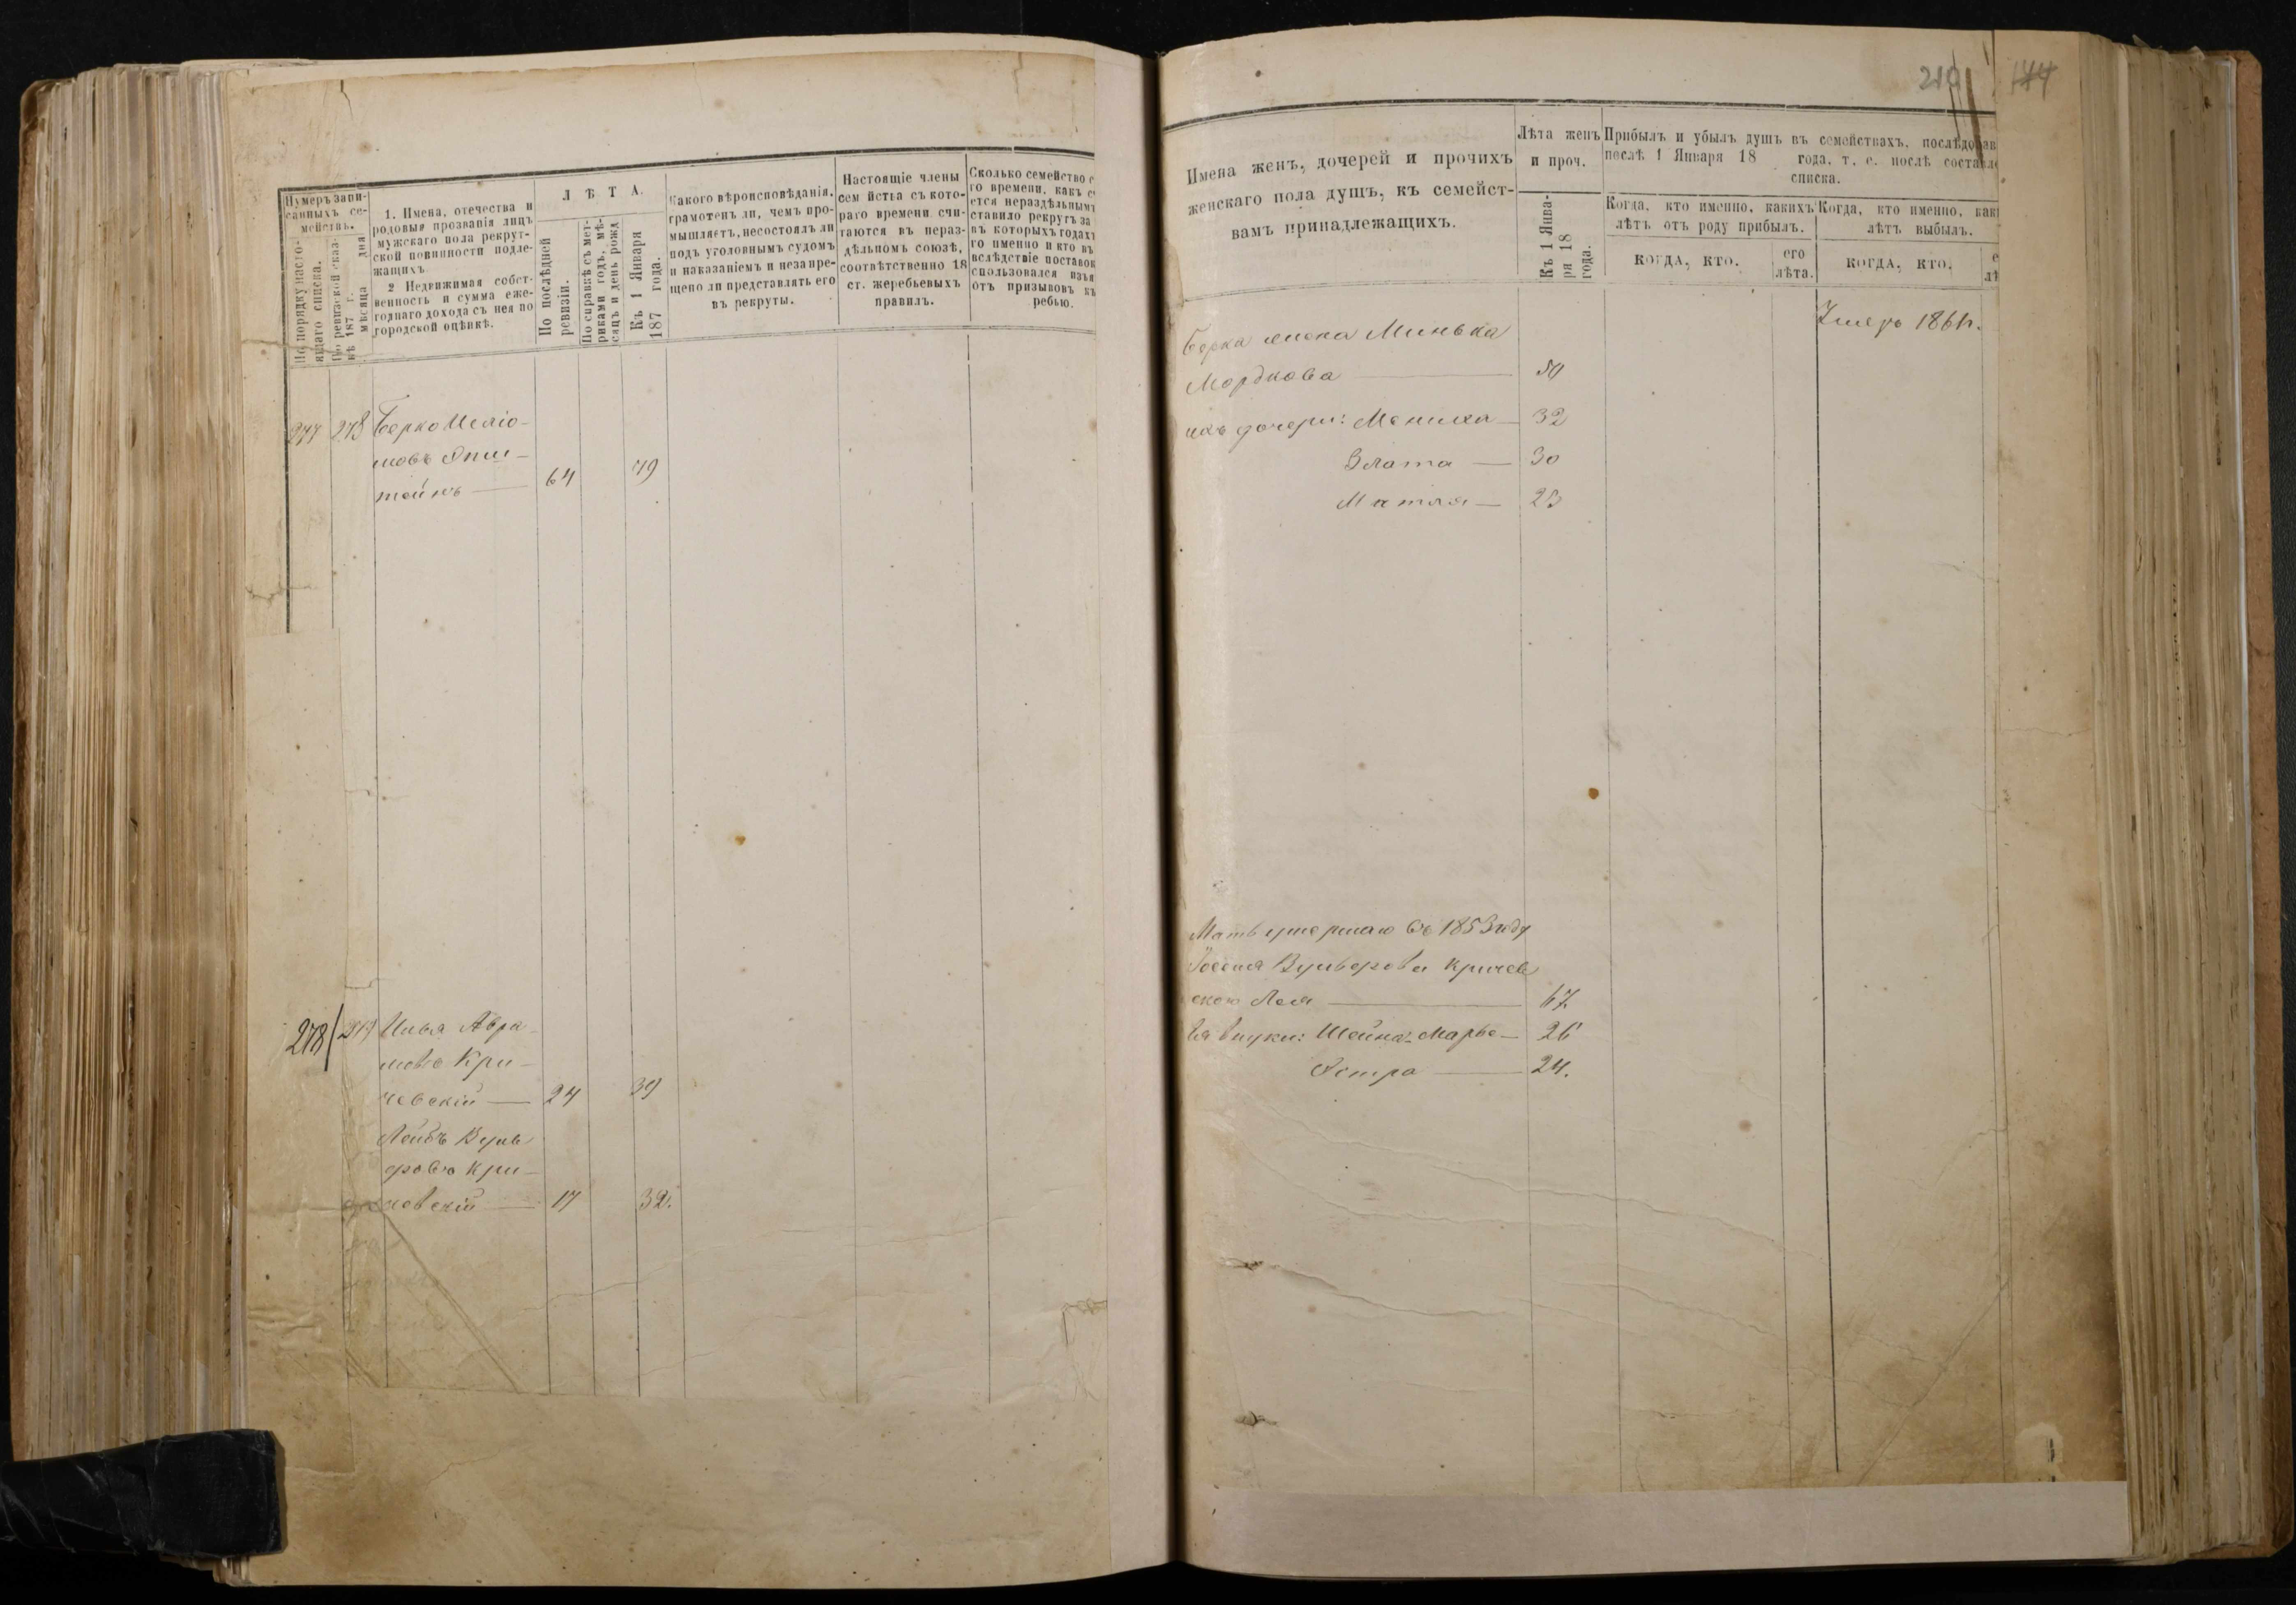 Нумеръ запи-
санныхъ се-
мействъ.
По порядку насто-
ящаго списка.
По ревизской сказ-
кѣ 187 г.
мѣсяца дня
1. Имена, отечества и
родовыя прозванія лицъ
мужскаго пола рекрут-
ской повинности подле-
жащихъ
2 Недвижимая собст-
венность и сумма еже-
годнаго дохода съ нея по
городской оцѣнкѣ.
ЛѢТА.
По послѣдней
ревизіи.
По справкѣ съ мет-
риками годъ, мѣ-
сяцъ и день рожд
Къ 1 Января
187 года.
Какого вѣроисповѣданія,
грамотенъ ли, чемъ про-
мышляетъ, несостоялъ ли
подъ уголовнымъ судомъ
и наказаніемъ и незапре-
щено ли представлять его
въ рекруты.
Настоящіе члены
сем йства съ кото-
раго времени счи-
таются въ нераз-
дѣльномъ союзѣ,
соотвѣтственно 18
ст. жеребьевыхъ
правилъ.
Сколько семейство с
го времени, какъ с
ется нераздѣльнымъ
ставило рекрутъ за
въ которыхъ годахъ
го именно и кто въ
вслѣдствіе поставок
спользовался изъя
отъ призывовъ къ
ребью.
277 278 Берко
мовъ Эпш-
тейнъ — 64 79
278 279 Илья Абра-
мовъ Кри-
чевскій — 24 39
Лейбъ Вуль
фовъ Кри-
чевскій — 17 32.
210 144
Имена женъ, дочерей и прочихъ
женскаго пола душъ, къ семейст-
вамъ принадлежащихъ.
Лѣта женъ
и проч.
Къ 1 Янва-
ря 18
года.
Прибылъ и убылъ душъ въ семействахъ, послѣдовав
послѣ 1 Января 18 года, т. е. послѣ составле
списка.
Когда, кто именно, какихъ
лѣтъ отъ роду прибылъ.
Когда, кто именно, как
лѣтъ выбылъ.
КОГДА, КТО.
его
лѣта.
КОГДА, КТО.
е
лѣ
Умеръ
Берка жена Минька
Мордкова — 50
ихъ дочери: Мениха — 32
Злата — 30
Матля —
Мать умершаго въ 1853 году
Вульфова Кричев
скаго Лея — 67
Ея внуки: Шейна-Марье — 26
Эстра — 24.